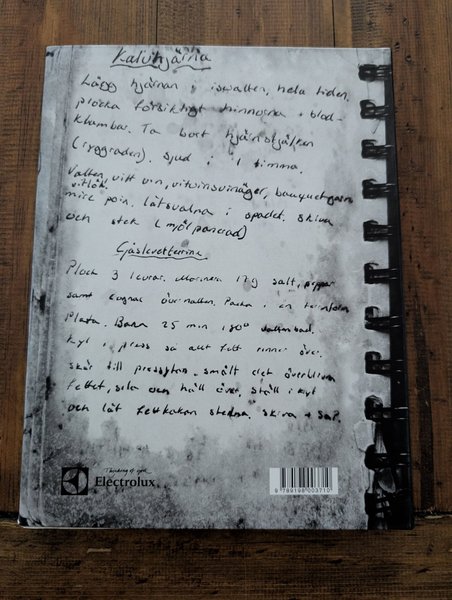 Kalvhjärna
Lägg hjärnan i isvatten, hela tiden,
plocka försiktigt hinnorna + blod-
klumbar. Ta bort hjärnstjälken
(ryggraden). Sjud i 1 timma.
Vatten, vitt vin, vitvinsvinäger, bouquetgarni
vitlök.
mire poix. Låt svalna i spadet. skiva
och stek (mjölpanerad)
Gåsleverterrine
Plock 3 levrar. Marinera 17g salt, peppar
samt cognac över natten. Packa i en
Plasta. Baka 25 min 180° vattenbad.
kyl i press så att fett rinner över.
skär till pressytan. smält det överblivna
fettet, sila och häll över, ställ i kyl
och låt fettkakan stelna. skiva +
Thinking of you
Electrolux
9 789198 003710